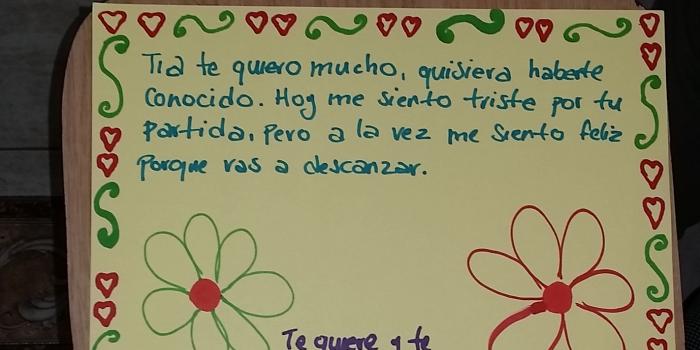 Tia te quiero mucho, quisiera haberte
conocido. Hoy me siento triste por tu
partida, Pero a la vez me siento feliz
Porque vas a descanzar.
Te quiere y te